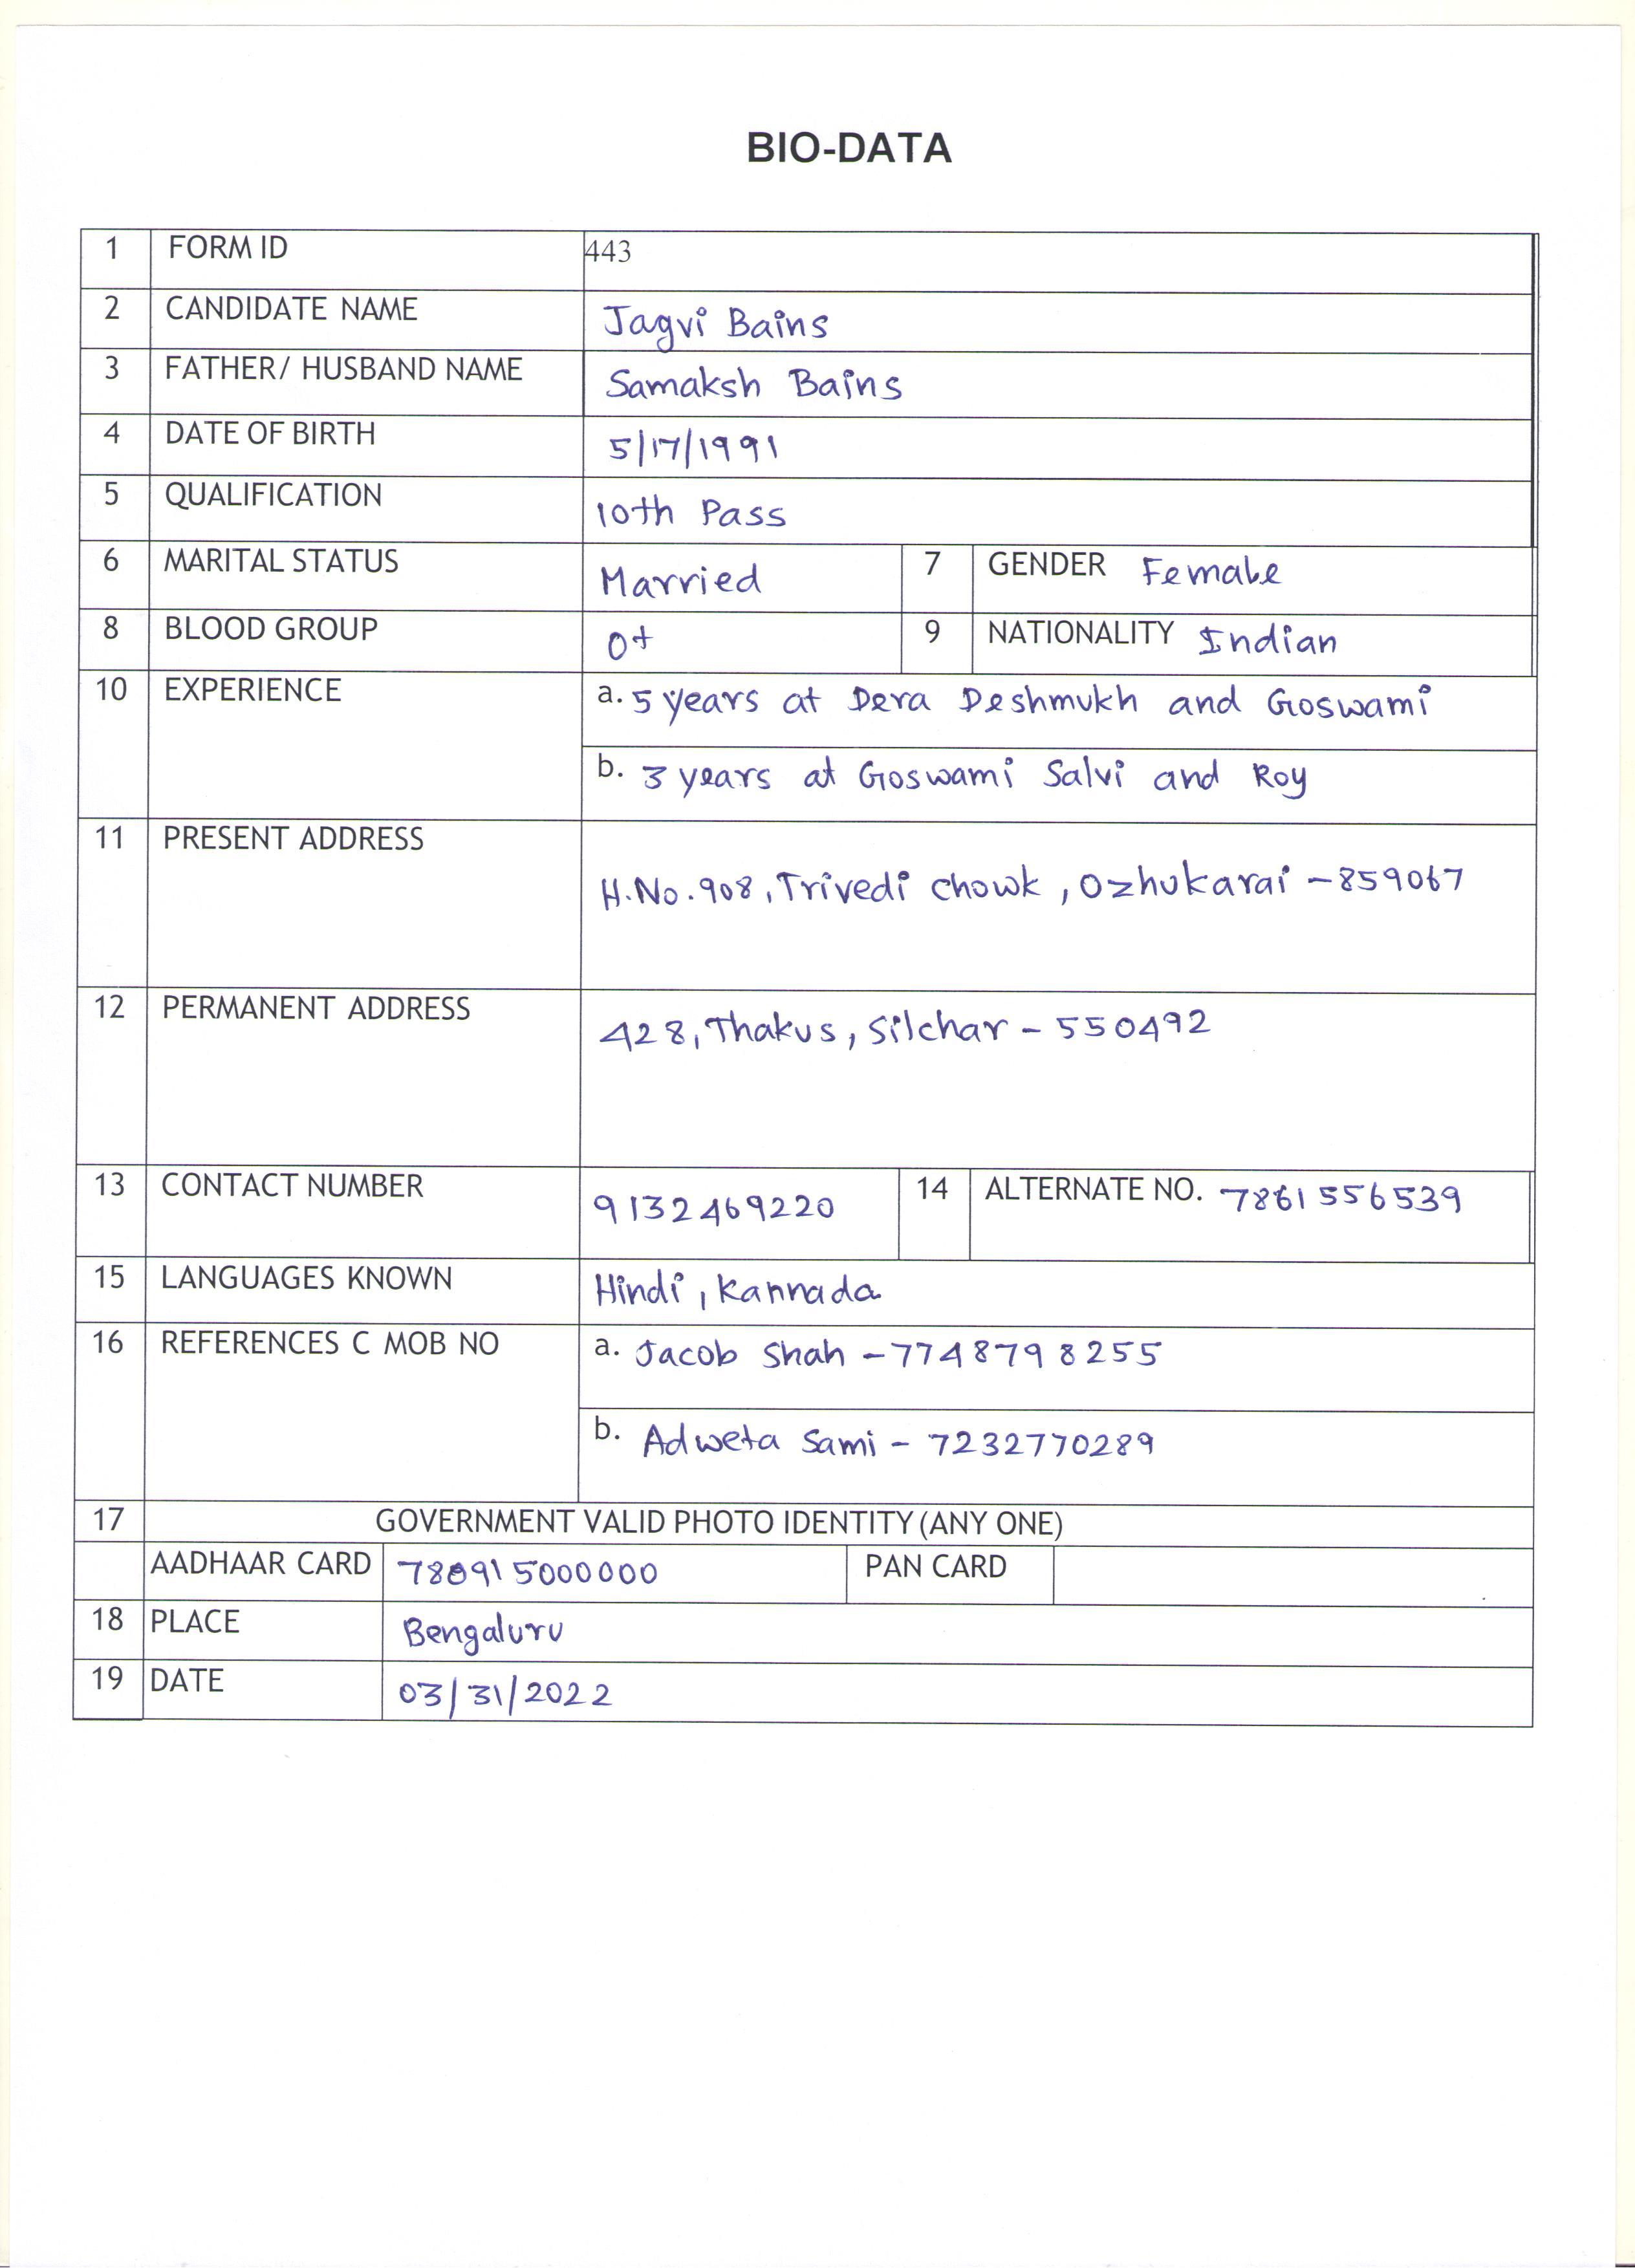 BIO-DATA
1 FORM ID 443
2 CANDIDATE NAME Jagvi Bains
3 FATHER/ HUSBAND NAME Samaksh Bains
4 DATE OF BIRTH 5/17/1991
5 QUALIFICATION 10th Pass
6 MARITAL STATUS Married 7 GENDER Female
8 BLOOD GROUP O+ 9 NATIONALITY Indian
10 EXPERIENCE a. 5 years at Dera Deshmukh and Goswami
b. 3 years at Goswami Salvi and Roy
11 PRESENT ADDRESS
H.No.908, Trivedi chowk, Ozhukarai -859067
12 PERMANENT ADDRESS 428, Thakus, Silchar - 550492
13 CONTACT NUMBER 9132469220 14 ALTERNATE NO. 7861556539
15 LANGUAGES KNOWN Hindi, Kannada
16 REFERENCES C MOB NO a. Jacob Shah -7748798255
b. Adweta Sami - 7232770289
17 GOVERNMENT VALID PHOTO IDENTITY (ANY ONE)
AADHAAR CARD 780915000000 PAN CARD
18 PLACE Bengaluru
19 DATE 03/31/2022